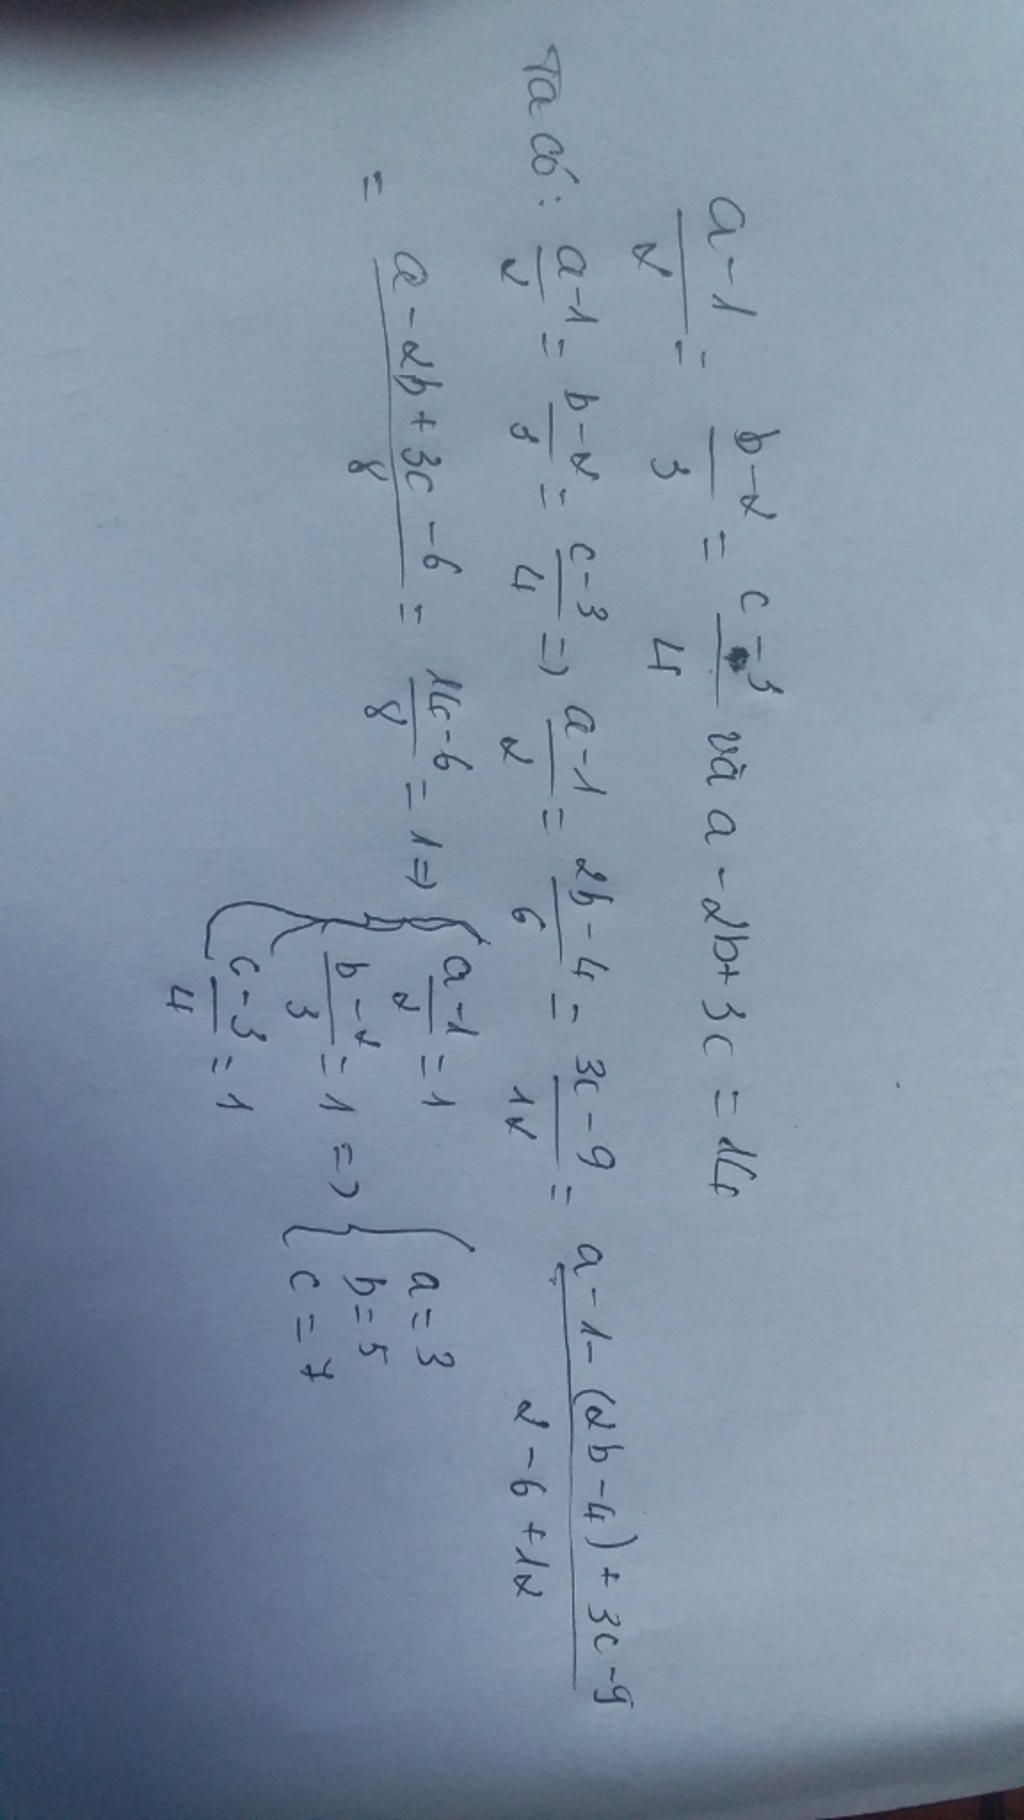 a-1/2 = b-2/3 = c-3/4 và a-2b+3c=14
Ta có: a-1/2 = b-2/3 = c-3/4 => a-1/2 = 2b-4/6 = 3c-9/12 = a-1-(2b-4)+3c-9/2-6+12
= a-2b+3c-6/8 = 14-6/8 = 1 => { a-1/2 = 1
b-2/3 = 1 => { a=3
c-3/4 = 1
b=5
c=7